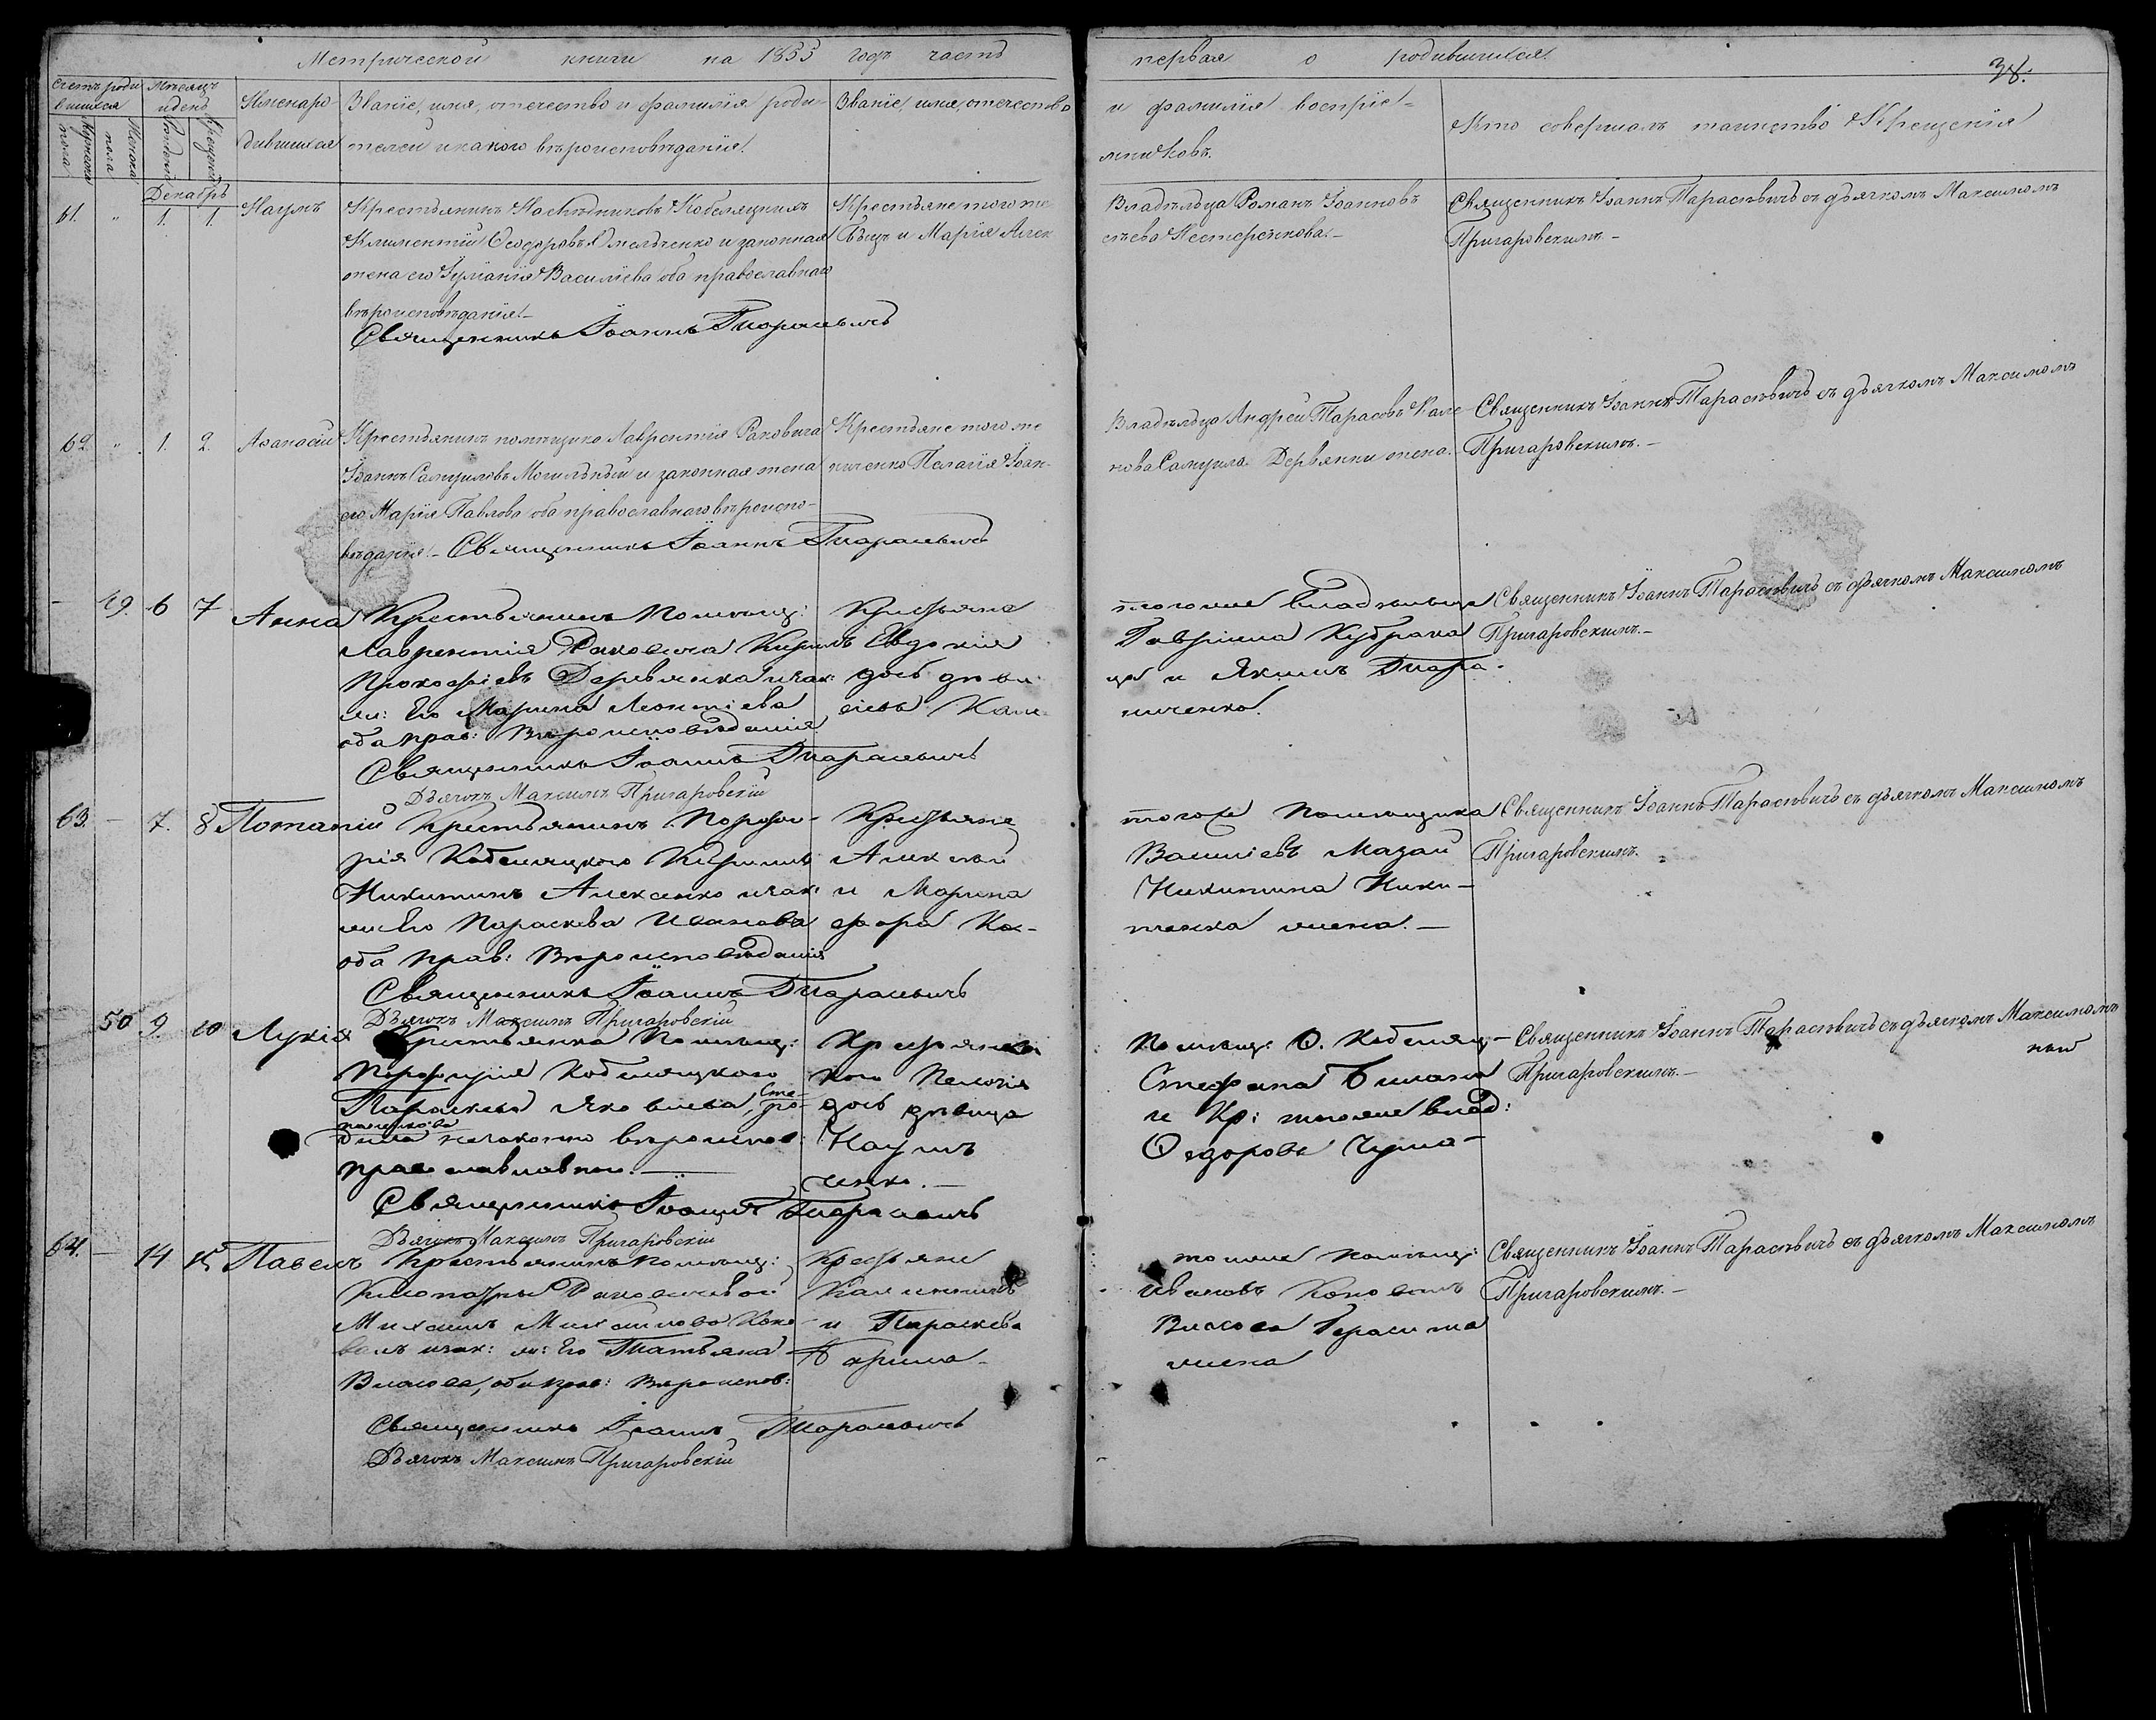 Метрической книги на 1855 годъ часть первая о родившихся.
38.
Счетъ роди
вшихся
Мужеска
пола
Женска
пола
Мѣсяцъ
и день
Рожденія
Крещенія
Имена ро
дившихся
Званіе, имя, отечество и фамилія роди-
телей и какого вѣроисповѣданія.
Званіе, имя, отечество
и фамилія воспріе-
мниковъ.
Кто совершалъ таинство Крещенія
Декабрь
61. " 1. 1. Наумъ
Крестьянинъ Наслѣдниковъ Кобеляцкихъ
Климентій Ѳеодоровъ Омельченко и законная
жена его Іуліанія Василіева оба православнаго
вѣроисповѣданія.
Священникъ Іоаннъ Тарасевичъ
Крестьяне того же
Бѣцъ и Марія Алек
Владѣльца Романъ Іоанновъ
сѣева Нестеренкова.
Священникъ Іоаннъ Тарасѣвичъ съ дьячкомъ Максимомъ
Пригаровскимъ.
62. " 1. 2. Аѳанасій
Крестьянинъ помѣщика Лаврентія Раковича
Іоаннъ Самуиловъ Могильный и законная жена
его Марія Павлова оба православнаго вѣроиспо-
вѣданія. Священникъ Іоаннъ Тарасевичъ
Крестьяне того же
ниченко Пелагія Іоан-
Владѣльца Андрей Тарасовъ Кале
нова Самуила Дервянки жена.
Священникъ Іоаннъ Тарасѣвичъ съ дьячкомъ Максимомъ
Пригаровскимъ.
49. 6 7 Анна
Крестьянинъ Помѣщ:
Лаврентія Раковича Кирилъ
Прокофіевъ Дервянка и зак:
жи: Его Марина Леонтіева
оба прав: Вѣроисповѣданія
Священникъ Іоаннъ Тарасевичъ
Дьячокъ Максимъ Пригаровскій
Крестьяне
Евдокія
дочь дѣви
Кале
тогоже Владѣльца
Гавріила Кубрака
ца и Якимъ
ниченко.
Священникъ Іоаннъ Тарасѣвичъ съ дьячкомъ Максимомъ
Пригаровскимъ.
63. 7. 8 Потапій
Крестьянинъ Порфи-
рія Кобеляцкого Кирилъ
Никитинъ Алексенко и зак:
жи Его Параскева Иванова
оба прав: Вѣроисповѣданія
Священникъ Іоаннъ Тарасевичъ
Дьячокъ Максимъ Пригаровскій
Крестьяне
Алексѣй
и Марина
фора Ко-
тогоже Помѣщика
Василіевъ Мазай
Никитина Ники-
жена.
Священникъ Іоаннъ Тарасѣвичъ съ дьячкомъ Максимомъ
Пригаровскимъ.
50 9. 10 Лукія
Крестьянка Помѣщ:
Порфирія Кобеляцкого
Параскева Яковлева, Сте-
ро-
дила незаконно вѣроиспов:
православной.
Священникъ Іоаннъ Тарасевичъ
Дьячокъ Максимъ Пригаровскій
Крестьяне
кого Пелагія
дочь дѣвица
Наумъ
ченко.
Помѣщ: Ѳ. Кобеляц-
Стефана Билана
и Кр: тогоже влад:
Ѳедоровъ Чума-
Священникъ Іоаннъ Тарасѣвичъ съ дьячкомъ Максимомъ
Пригаровскимъ.
64. 14 15 Павелъ
Крестьянинъ Помѣщ:
Клеопатры Раковичевой
Михаилъ Михайловъ Коно-
валъ и зак: ж: Его Татьяна
Власова, оба прав: Вѣроиспов:
Священникъ Іоаннъ Тарасевичъ
Дьячокъ Максимъ Пригаровскій
Крестьяне
Калиникъ
и Параскева
тоеже помѣщ:
Ивановъ Коновалъ
Власова Герасима
жена
Священникъ Іоаннъ Тарасѣвичъ съ дьячкомъ Максимомъ
Пригаровскимъ.